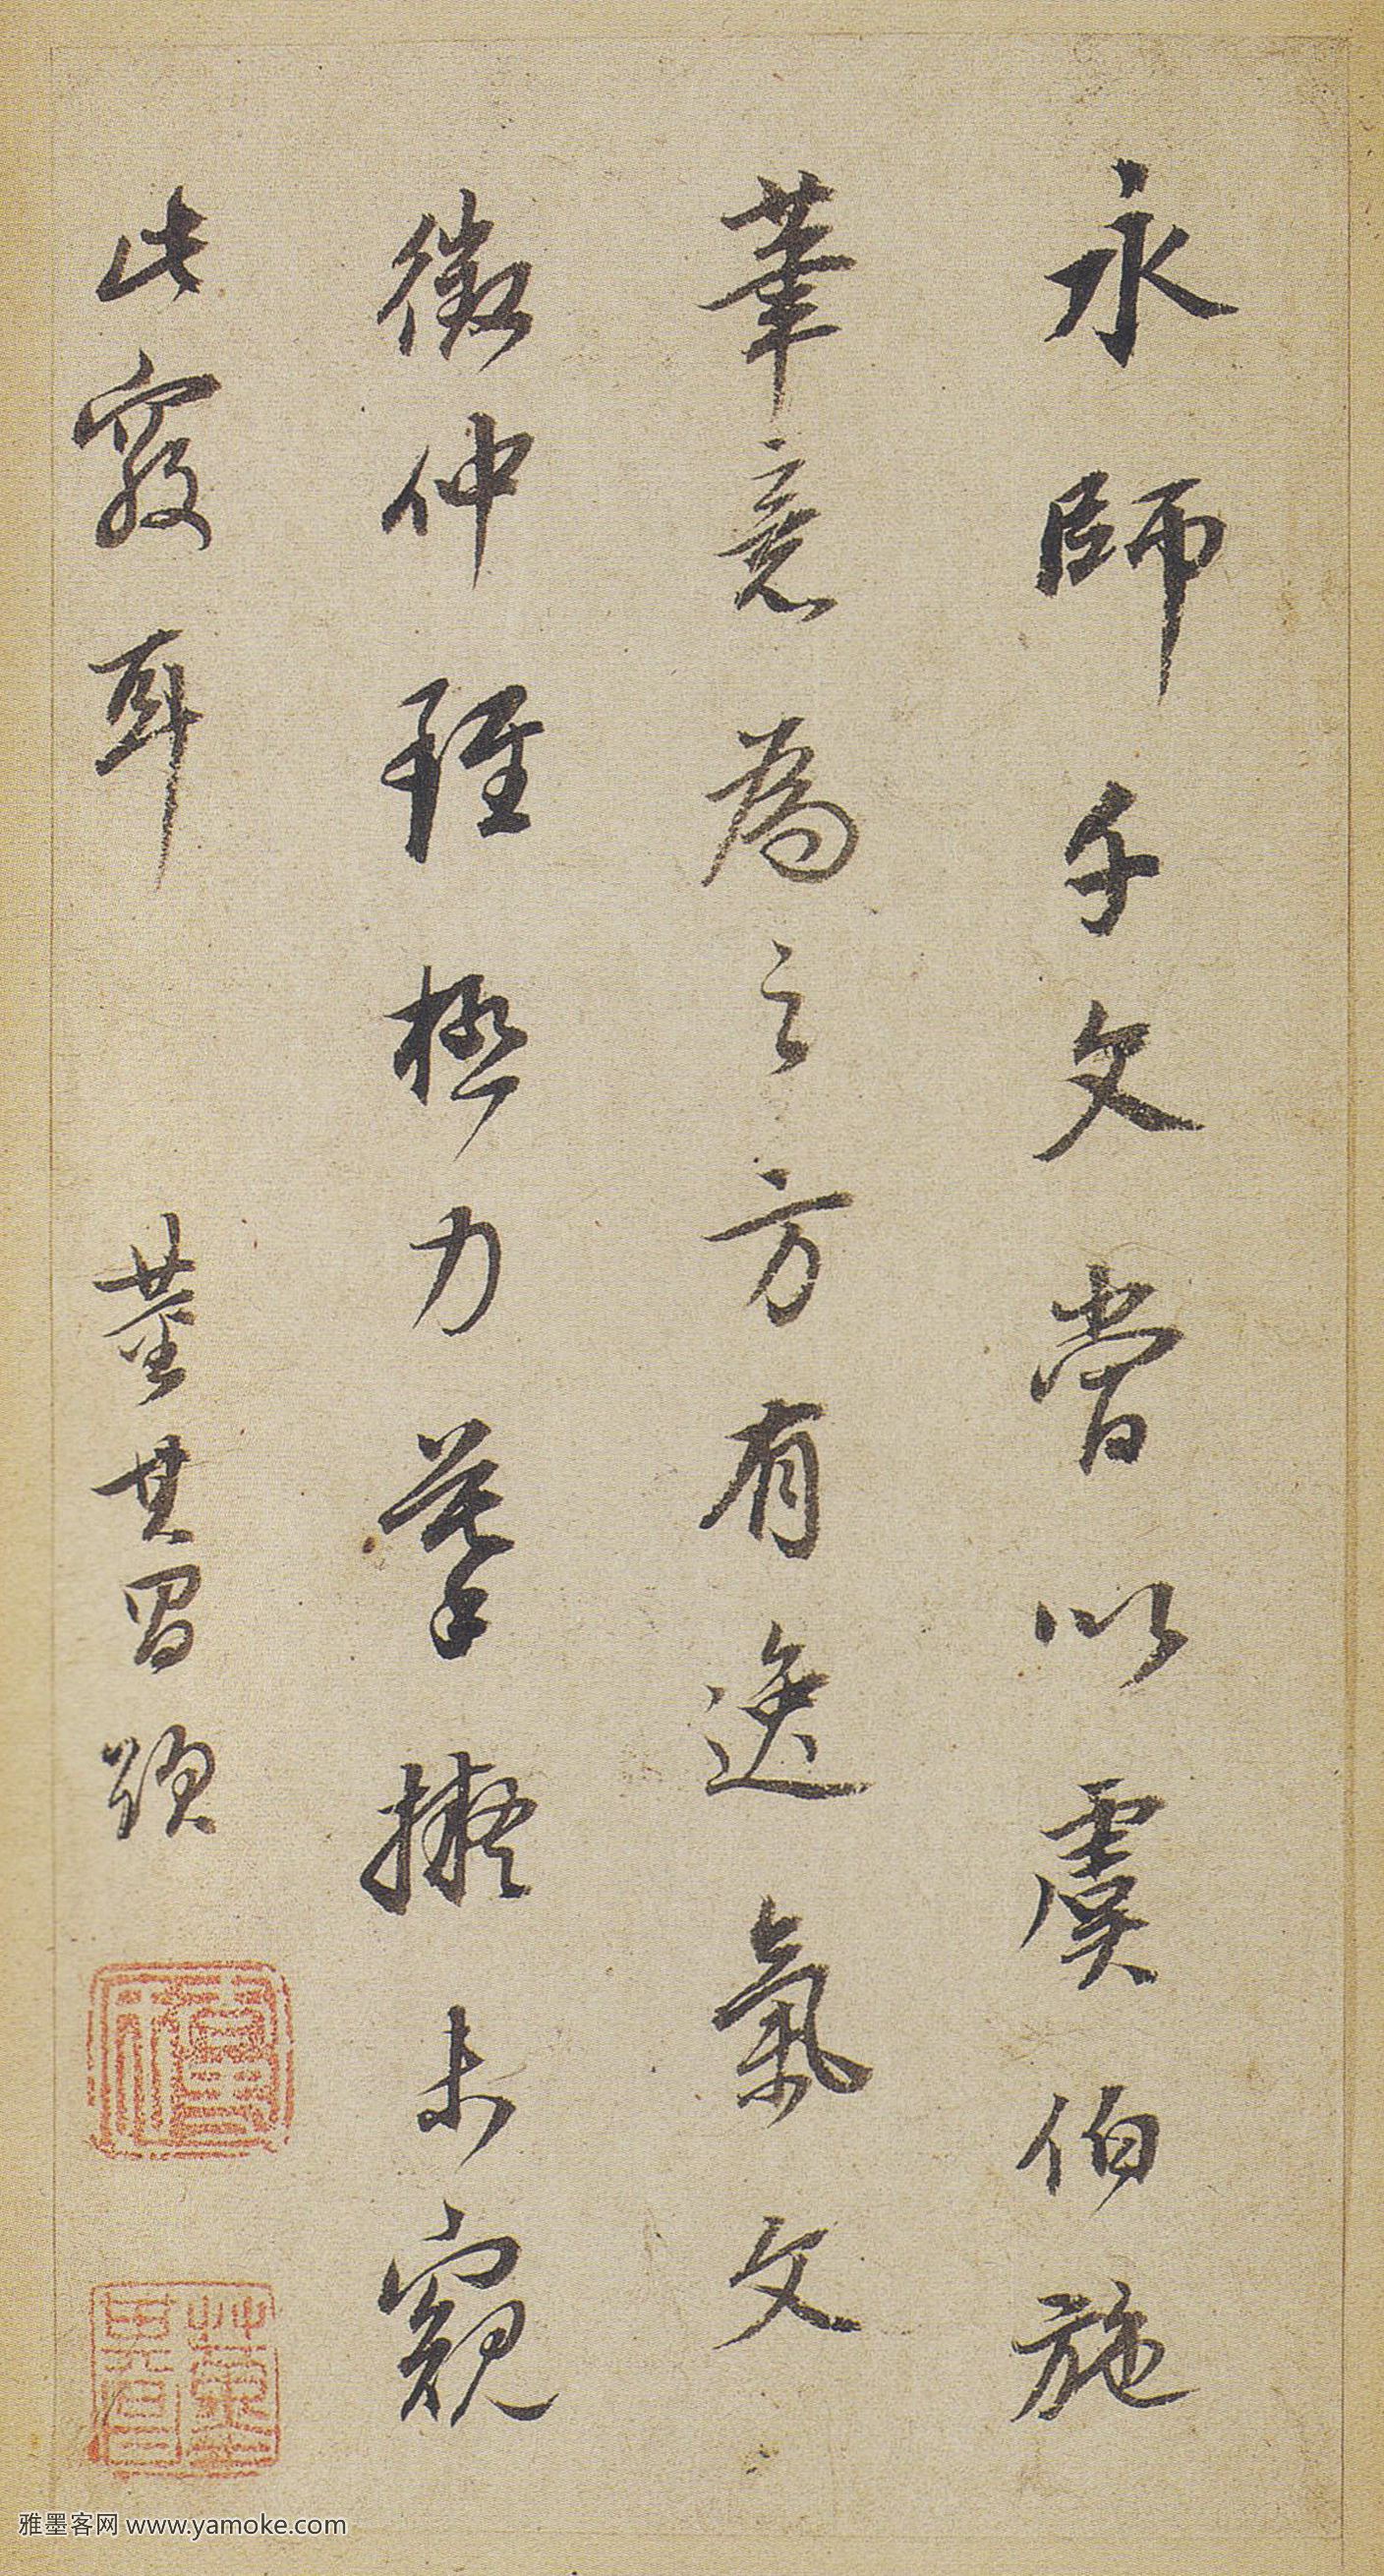 永師千文嘗以虞伯施
筆意為之方有逸氣文
徵仲雖極力摹擬未窺
此竅耳 董其昌題
雅墨客网 www.yamoke.com